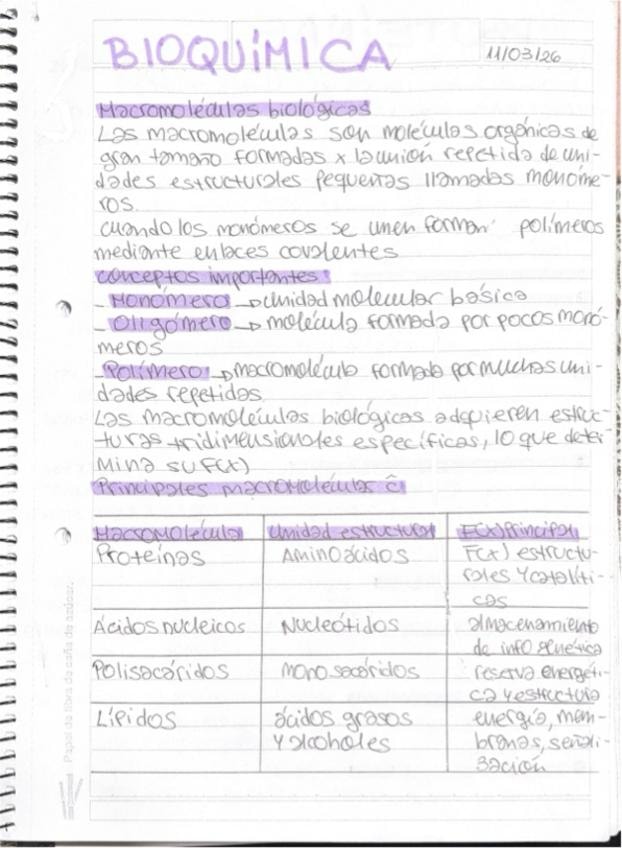 BIOQUÍMICA
11/03/26
Macromoléculas biológicas
Las macromoléculas son moléculas orgánicas de
gran tamaño formadas x la unión repetida de uni-
dades estructurales pequeñas llamadas monóme-
ros.
Cuando los monómeros se unen forman polímeros
mediante enlaces covalentes
Conceptos importantes:
- Monómero → unidad molecular básica
- Oligómero → molécula formada por pocos monó-
meros
- Polímero → macromolécula formada por muchas uni-
dades repetidas.
Las macromoléculas biológicas adquieren estruc-
turas tridimensionales específicas, lo que deter
mina su F(x)
Principales macromoléculas ĉ
Macromolécula Unidad estructural F(x) Principal
Proteínas Aminoácidos F(x) estructu-
rales y catalíti-
cas
Ácidos nucleicos Nucleótidos almacenamiento
de info genética
Polisacáridos monosacáridos reserva energéti-
ca y estructura
Lípidos ácidos grasos energía, mem-
y alcoholes branas, señali-
zación
Papel de fibra de caña de azúcar.